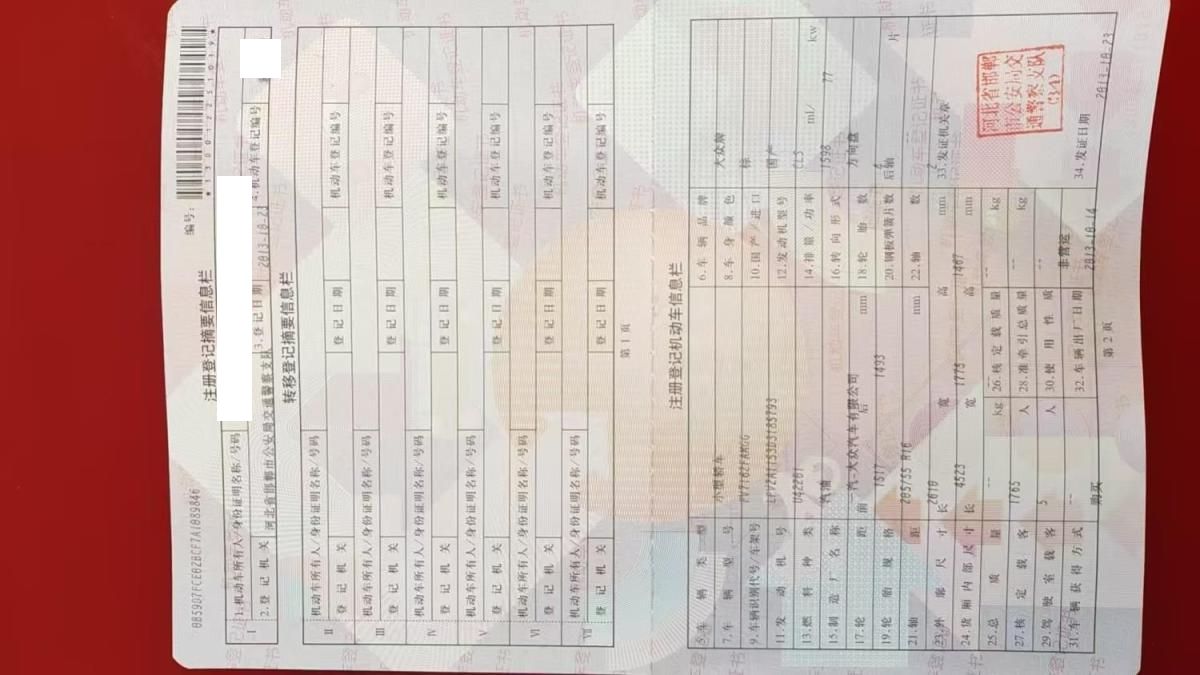 编号:
*130012251039*
0B59D7FCE02BCF7A1889846
注册登记摘要信息栏
I
1.机动车所有人/身份证明名称/号码
2.登记机关 河北省邯郸市公安局交通警察支队 3.登记日期 2013-10-23 4.机动车登记编号
转移登记摘要信息栏
II 机动车所有人/身份证明名称/号码
登记机关 登记日期 机动车登记编号
III 机动车所有人/身份证明名称/号码
登记机关 登记日期 机动车登记编号
IV 机动车所有人/身份证明名称/号码
登记机关 登记日期 机动车登记编号
V 机动车所有人/身份证明名称/号码
登记机关 登记日期 机动车登记编号
VI 机动车所有人/身份证明名称/号码
登记机关 登记日期 机动车登记编号
VII 机动车所有人/身份证明名称/号码
登记机关 登记日期 机动车登记编号
第 1 页
注册登记机动车信息栏
5.车辆类型 小型轿车 6.车辆品牌 大众牌
7.车辆型号 FV7162FAMGG 8.车身颜色 棕
9.车辆识别代号/车架号 10.国产/进口 国产
11.发动机号 U42261 12.发动机型号 CLS
13.燃料种类 汽油 14.排量/功率 1598 ml/ 77 kw
15.制造厂名称 一汽-大众汽车有限公司 16.转向形式 方向盘
17.轮距 前 1517 后 1493 mm 18.轮胎数 4
19.轮胎规格 205/55 R16 20.钢板弹簧片数 后轴 片
21.轴距 2610 mm 22.轴数 2
23.外廓尺寸 长 4523 宽 1775 高 1467 mm 33.发证机关章
24.货厢内部尺寸 长 -- 宽 高 mm
25.总质量 1765 kg 26.核定载质量 -- kg
27.核定载客 5 人 28.准牵引总质量 -- kg
29.驾驶室载客 -- 人 30.使用性质 非营运
31.车辆获得方式 购买 32.车辆出厂日期 2013-10-14 34.发证日期 2013-10-23
河北省邯郸
市公安局交
通警察支队
(34)
第 2 页